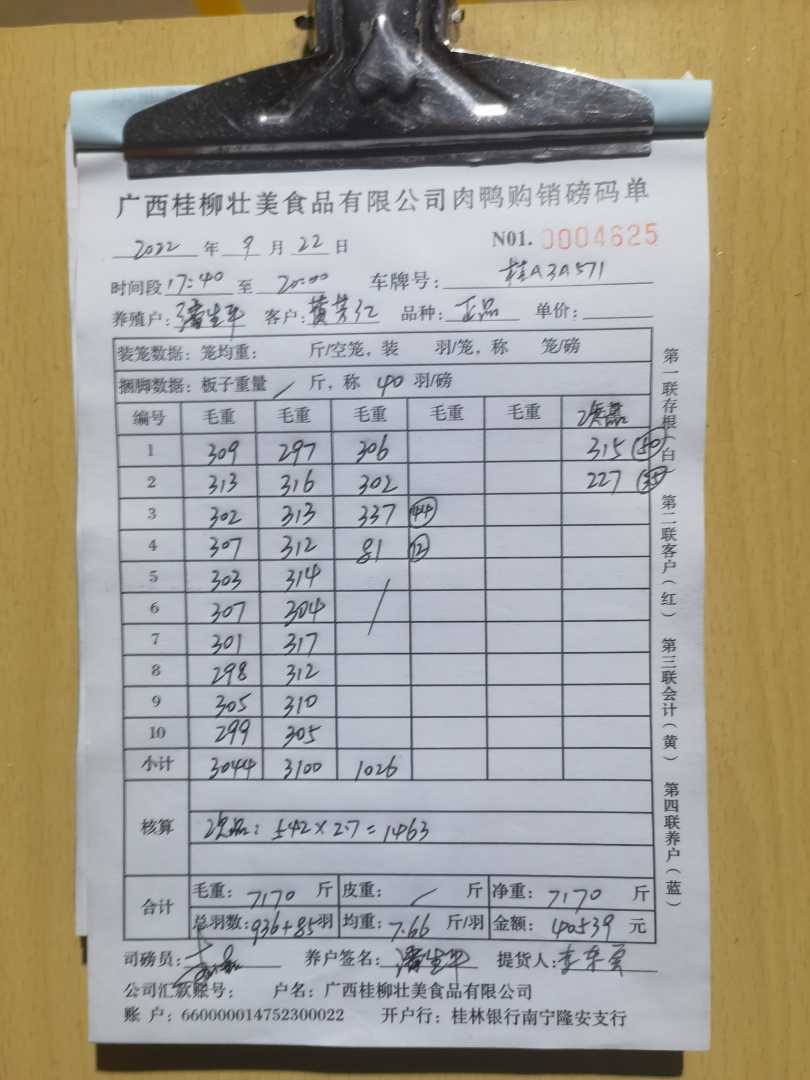 广西桂柳壮美食品有限公司肉鸭购销磅码单
2022 年 9 月 22 日 N01. 0004625
时间段 17:40 至 20:00 车牌号: 桂A3A571
养殖户: 潘生平 客户: 黄芳红 品种: 正品 单价:
装笼数据: 笼均重: 斤/空笼, 装 羽/笼, 称 笼/磅
捆脚数据: 板子重量 / 斤, 称 40 羽/磅
编号 毛重 毛重 毛重 毛重 毛重 次品
1 309 297 306 315 (50)
2 313 316 302 227 (35)
3 302 313 337 (44)
4 307 312 81 (12)
5 303 314 /
6 307 304
7 301 317
8 298 312
9 305 310
10 299 305
小计 3044 3100 1026
核算 次品: 542×2.7=1463
合计 毛重: 7170 斤 皮重: / 斤 净重: 7170 斤
总羽数: 936+85 羽 均重: 7.66 斤/羽 金额: 40539 元
司磅员: 养户签名: 潘生平 提货人: 李东
公司汇款账号: 户名: 广西桂柳壮美食品有限公司
账 户: 660000014752300022 开户行: 桂林银行南宁隆安支行
第一联存根(白) 第二联客户(红) 第三联会计(黄) 第四联养户(蓝)